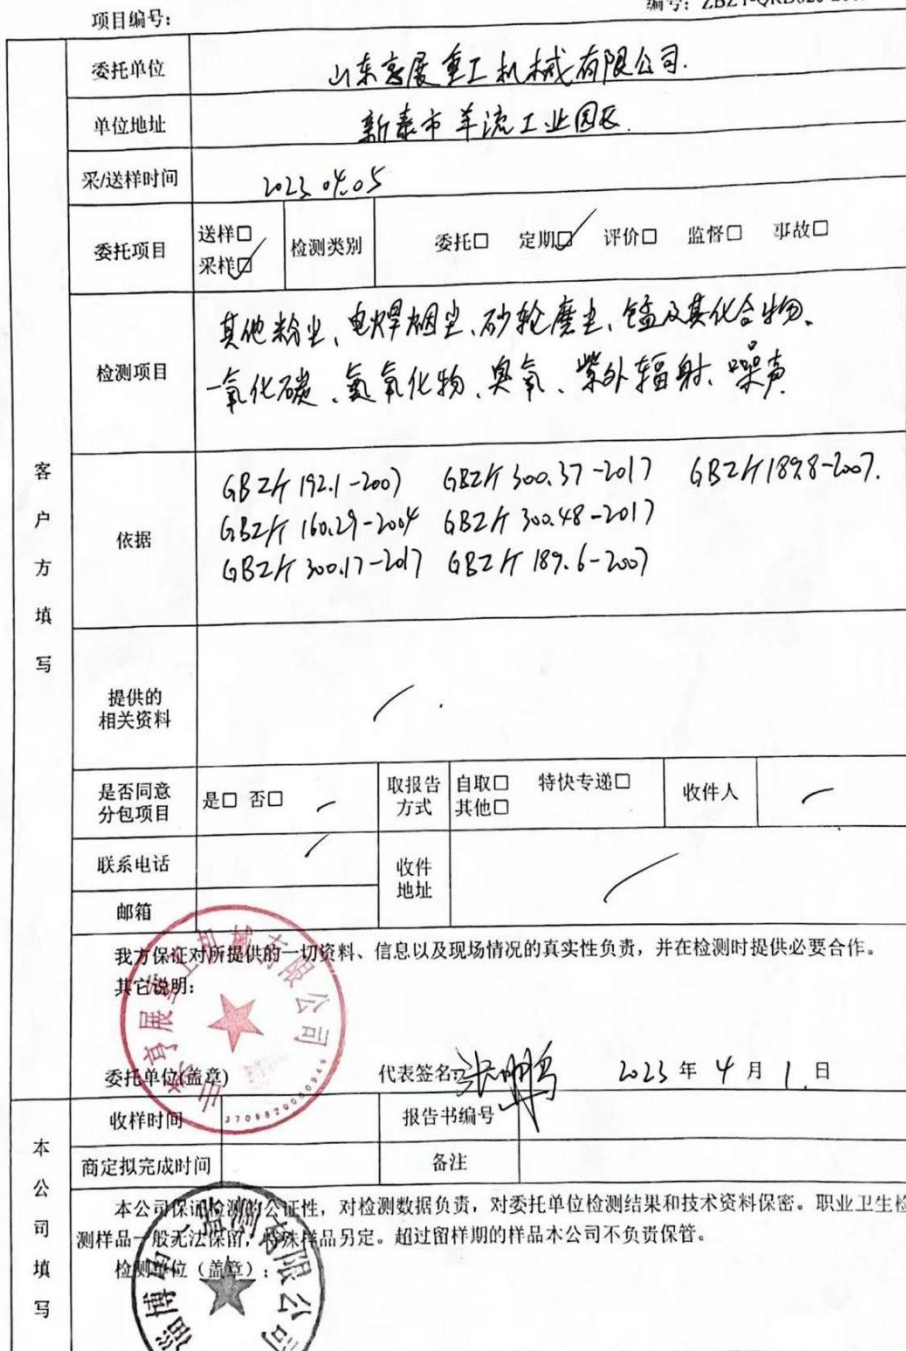 项目编号:
委托单位 山东亨展重工机械有限公司.
单位地址 新泰市羊流工业园区.
采/送样时间 2023.04.05
委托项目 送样☐ 采样☑ 检测类别 委托☐ 定期☑ 评价☐ 监督☐ 事故☐
检测项目
其他粉尘、电焊烟尘、砂轮磨尘、锰及其化合物、
一氧化碳、氮氧化物、臭氧、紫外辐射、噪声
客户方填写
依据
GBZ/T 192.1-2007 GBZ/T 300.37-2017 GBZ/T 189.8-2007.
GBZ/T 160.29-2004 GBZ/T 300.48-2017
GBZ/T 300.17-2017 GBZ/T 189.6-2007
提供的
相关资料 /
是否同意
分包项目 是☐ 否☐ /
取报告
方式 自取☐ 特快专递☐
其他☐
收件人 /
联系电话 /
收件
地址 /
邮箱
我方保证对所提供的一切资料、信息以及现场情况的真实性负责，并在检测时提供必要合作。
其它说明:
委托单位(盖章) 代表签名: 2023 年 4 月 1 日
收样时间 报告书编号
商定拟完成时间 备注
本公司填写
本公司保证检测的公证性，对检测数据负责，对委托单位检测结果和技术资料保密。职业卫生检
测样品一般无法保留，特殊样品另定。超过留样期的样品本公司不负责保管。
检测单位（盖章）: